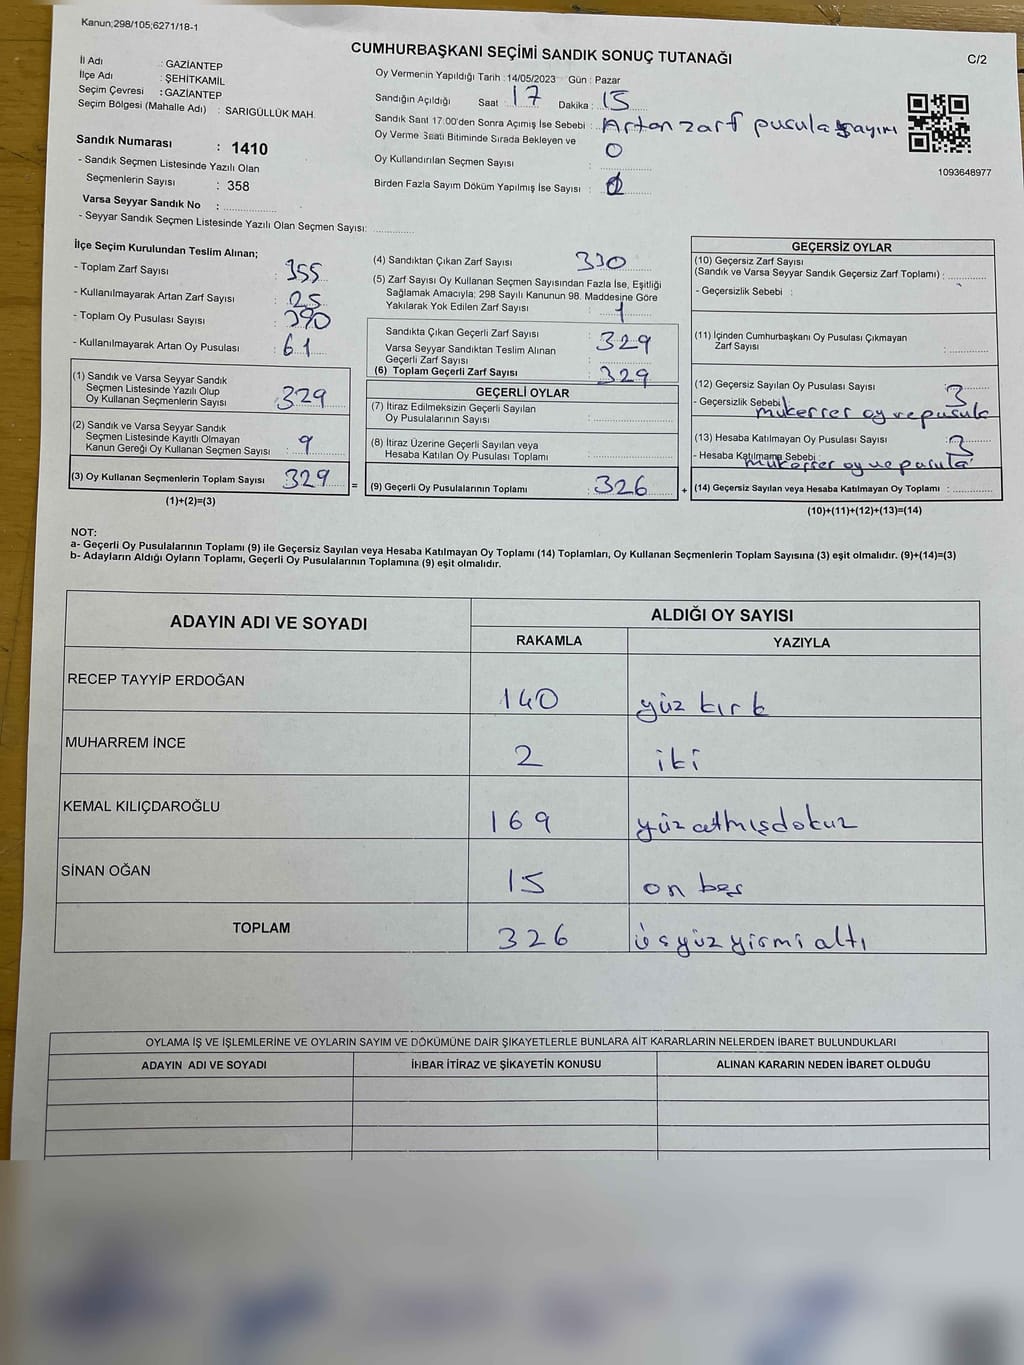 Kanun;298/105;6271/18-1
CUMHURBAŞKANI SEÇİMİ SANDIK SONUÇ TUTANAĞI
C/2
İl Adı : GAZİANTEP
İlçe Adı : ŞEHİTKAMİL
Seçim Çevresi : GAZİANTEP
Seçim Bölgesi (Mahalle Adı) : SARIGÜLLÜK MAH.
Sandık Numarası : 1410
- Sandık Seçmen Listesinde Yazılı Olan
Seçmenlerin Sayısı : 358
Varsa Seyyar Sandık No :
- Seyyar Sandık Seçmen Listesinde Yazılı Olan Seçmen Sayısı:
Oy Vermenin Yapıldığı Tarih : 14/05/2023 Gün : Pazar
Sandığın Açıldığı Saat : 17 Dakika : 15
Sandık Saat 17:00'den Sonra Açımış İse Sebebi : Artan zarf pusula sayımı
Oy Verme Saati Bitiminde Sırada Bekleyen ve
Oy Kullandırılan Seçmen Sayısı : 0
Birden Fazla Sayım Döküm Yapılmış İse Sayısı :
1093648977
İlçe Seçim Kurulundan Teslim Alınan;
- Toplam Zarf Sayısı : 355
- Kullanılmayarak Artan Zarf Sayısı : 25
- Toplam Oy Pusulası Sayısı : 390
- Kullanılmayarak Artan Oy Pusulası : 61
(1) Sandık ve Varsa Seyyar Sandık
Seçmen Listesinde Yazılı Olup
Oy Kullanan Seçmenlerin Sayısı : 329
(2) Sandık ve Varsa Seyyar Sandık
Seçmen Listesinde Kayıtlı Olmayan
Kanun Gereği Oy Kullanan Seçmen Sayısı : 9
(3) Oy Kullanan Seçmenlerin Toplam Sayısı : 329 =
(1)+(2)=(3)
(4) Sandıktan Çıkan Zarf Sayısı : 330
(5) Zarf Sayısı Oy Kullanan Seçmen Sayısından Fazla İse, Eşitliği
Sağlamak Amacıyla; 298 Sayılı Kanunun 98. Maddesine Göre
Yakılarak Yok Edilen Zarf Sayısı : 1
Sandıkta Çıkan Geçerli Zarf Sayısı : 329
Varsa Seyyar Sandıktan Teslim Alınan
Geçerli Zarf Sayısı :
(6) Toplam Geçerli Zarf Sayısı : 329
GEÇERLİ OYLAR
(7) İtiraz Edilmeksizin Geçerli Sayılan
Oy Pusulalarının Sayısı :
(8) İtiraz Üzerine Geçerli Sayılan veya
Hesaba Katılan Oy Pusulası Toplamı :
(9) Geçerli Oy Pusulalarının Toplamı : 326 +
GEÇERSİZ OYLAR
(10) Geçersiz Zarf Sayısı
(Sandık ve Varsa Seyyar Sandık Geçersiz Zarf Toplamı) :
- Geçersizlik Sebebi :
(11) İçinden Cumhurbaşkanı Oy Pusulası Çıkmayan
Zarf Sayısı :
(12) Geçersiz Sayılan Oy Pusulası Sayısı : 3
- Geçersizlik Sebebi : mükerrer oy ve pusula
(13) Hesaba Katılmayan Oy Pusulası Sayısı : 3
- Hesaba Katılmama Sebebi : mükerrer oy ve pusula
(14) Geçersiz Sayılan veya Hesaba Katılmayan Oy Toplamı :
(10)+(11)+(12)+(13)=(14)
NOT:
a- Geçerli Oy Pusulalarının Toplamı (9) ile Geçersiz Sayılan veya Hesaba Katılmayan Oy Toplamı (14) Toplamları, Oy Kullanan Seçmenlerin Toplam Sayısına (3) eşit olmalıdır. (9)+(14)=(3)
b- Adayların Aldığı Oyların Toplamı, Geçerli Oy Pusulalarının Toplamına (9) eşit olmalıdır.
ADAYIN ADI VE SOYADI
ALDIĞI OY SAYISI
RAKAMLA YAZIYLA
RECEP TAYYİP ERDOĞAN 140 yüz kırk
MUHARREM İNCE 2 iki
KEMAL KILIÇDAROĞLU 169 yüz atmışdokuz
SİNAN OĞAN 15 on beş
TOPLAM 326 üçyüz yirmi altı
OYLAMA İŞ VE İŞLEMLERİNE VE OYLARIN SAYIM VE DÖKÜMÜNE DAİR ŞİKAYETLERLE BUNLARA AİT KARARLARIN NELERDEN İBARET BULUNDUKLARI
ADAYIN ADI VE SOYADI İHBAR İTİRAZ VE ŞİKAYETİN KONUSU ALINAN KARARIN NEDEN İBARET OLDUĞU